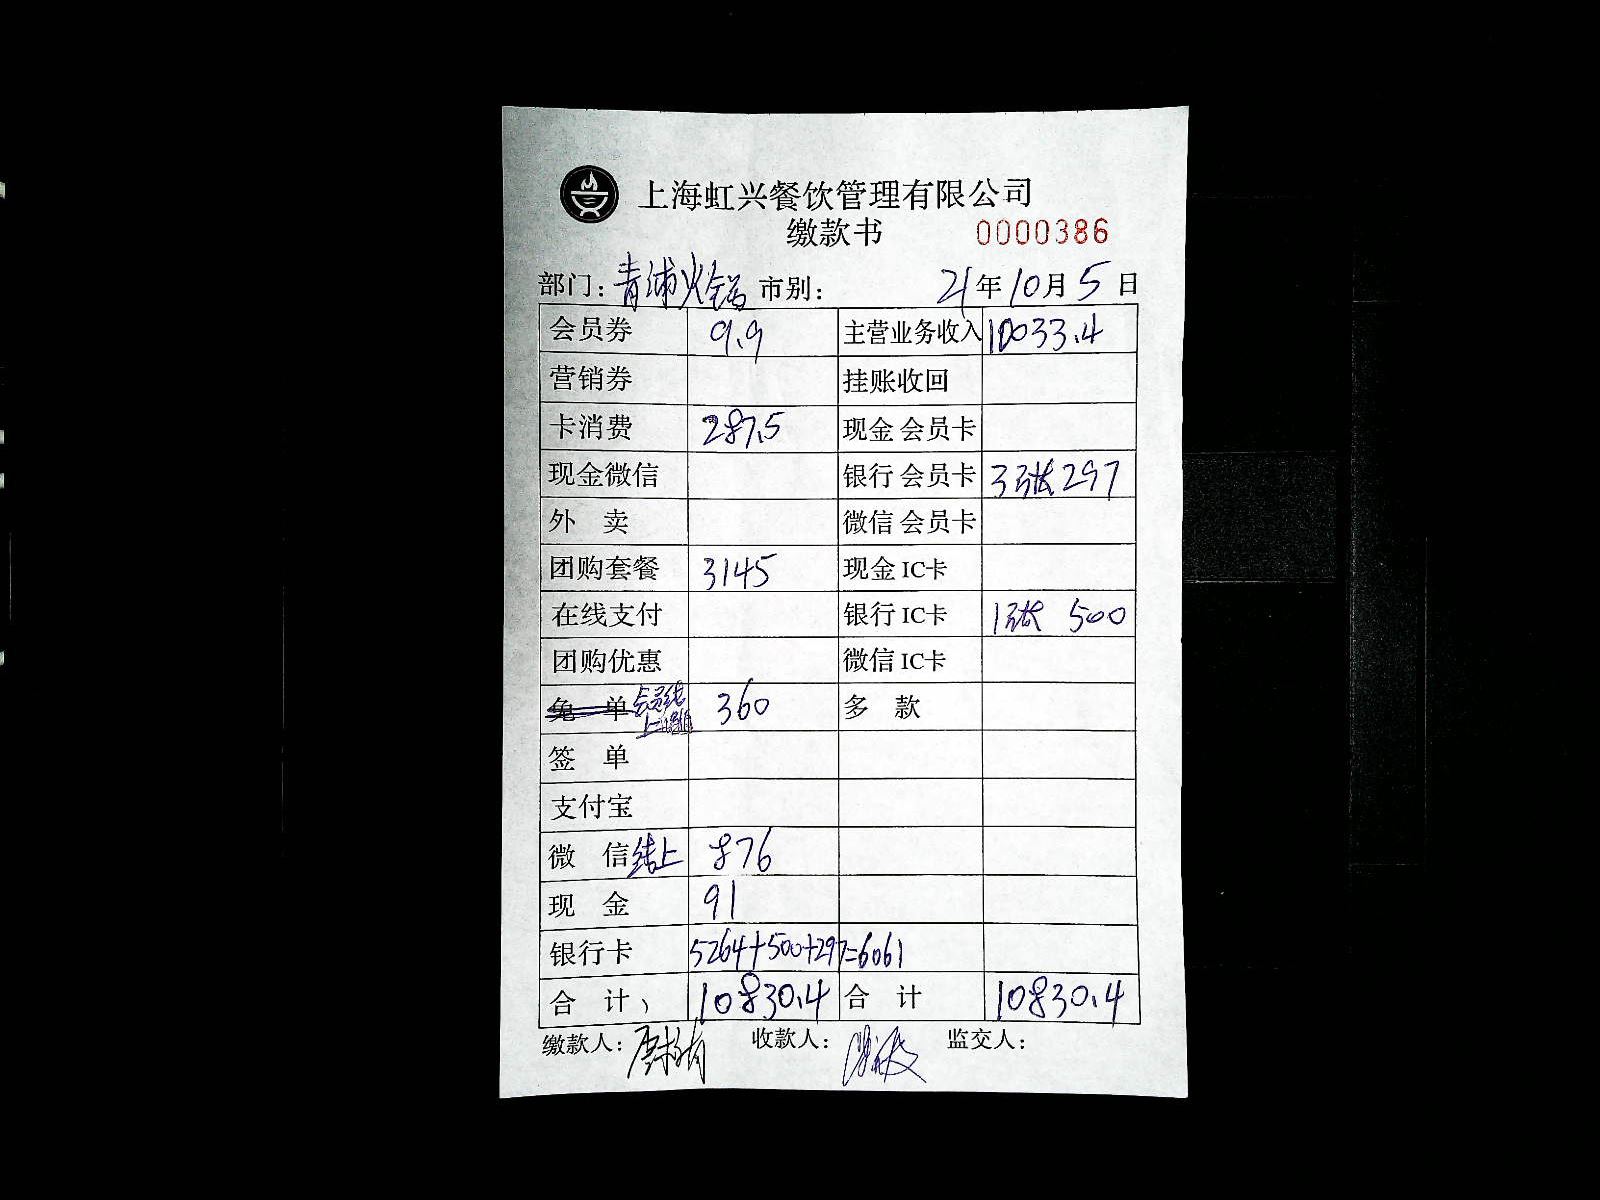 上海虹兴餐饮管理有限公司
缴款书 0000386
部门: 青浦火锅 市别: 21年10月5日
会员券 9.9 主营业务收入 10033.4
营销券 挂账收回
卡消费 287.5 现金 会员卡
现金微信 银行 会员卡 3张297
外 卖 微信 会员卡
团购套餐 3145 现金 IC卡
在线支付 银行 IC卡 1张 500
团购优惠 微信 IC卡
免 单 会员线上 360 多 款
签 单
支付宝
微 信 线上 876
现 金 91
银行卡 5264+500+297=6061
合 计 10830.4 合 计 10830.4
缴款人: 收款人: 监交人: